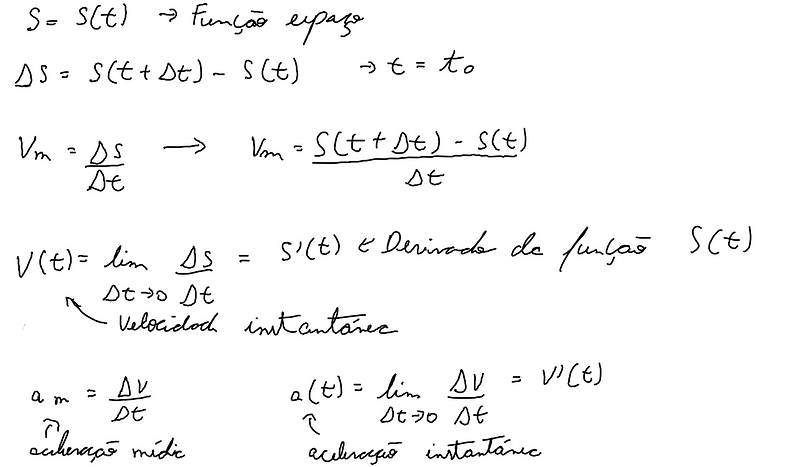 S = S(t) → Função espaço
ΔS = S(t + Δt) - S(t) → t = t₀
Vm = ΔS/Δt → Vm = S(t + Δt) - S(t)/Δt
V(t) = lim Δt→0 ΔS/Δt = S'(t) ← Derivada da função S(t)
Velocidade instantânea
am = ΔV/Δt a(t) = lim Δt→0 ΔV/Δt = V'(t)
aceleração média aceleração instantânea